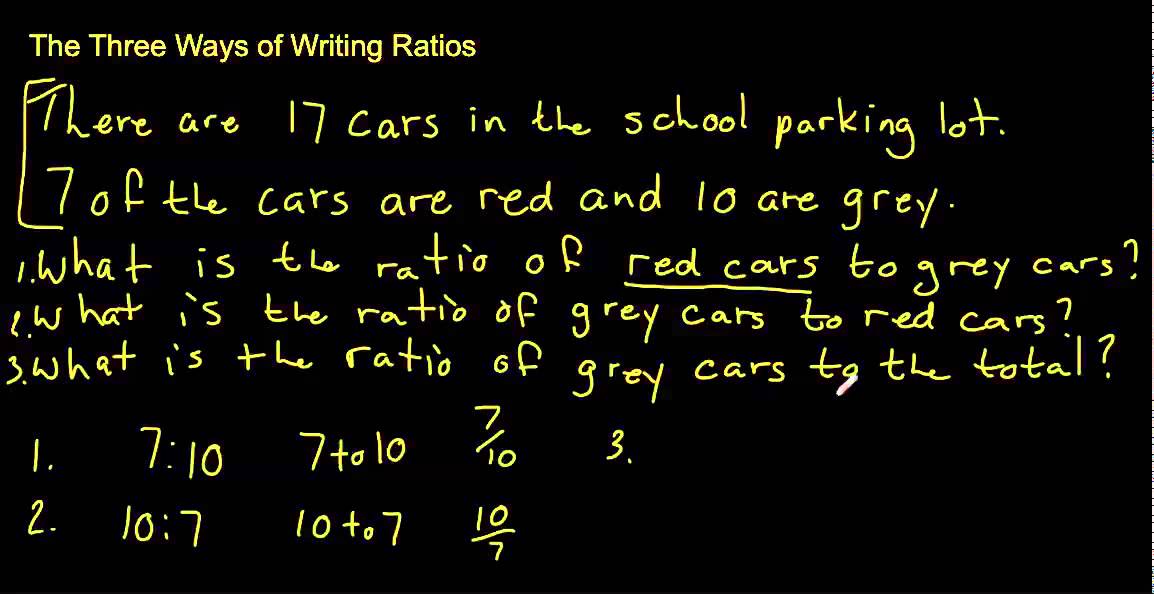 The Three Ways of Writing Ratios
There are 17 cars in the school parking lot.
7 of the cars are red and 10 are grey.
1. What is the ratio of red cars to grey cars?
2. What is the ratio of grey cars to red cars?
3. What is the ratio of grey cars to the total?
1. 7:10 7 to 10 7/10 3.
2. 10:7 10 to 7 10/7